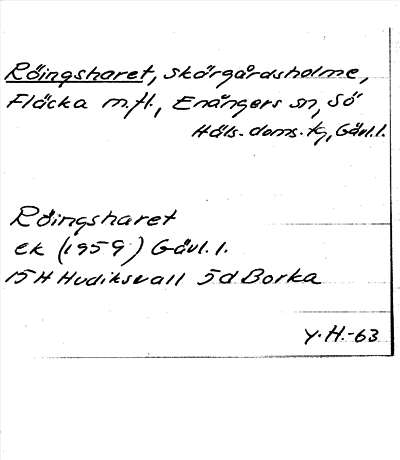 Röingsharet, skärgårdsholme,
Fläcka m.fl., Enångers sn, Sö
Häls. doms. tg, Gävl. l.
Röingsharet
ek (1959) Gävl. l.
15H Hudiksvall 5d Borka
Y.H.-63